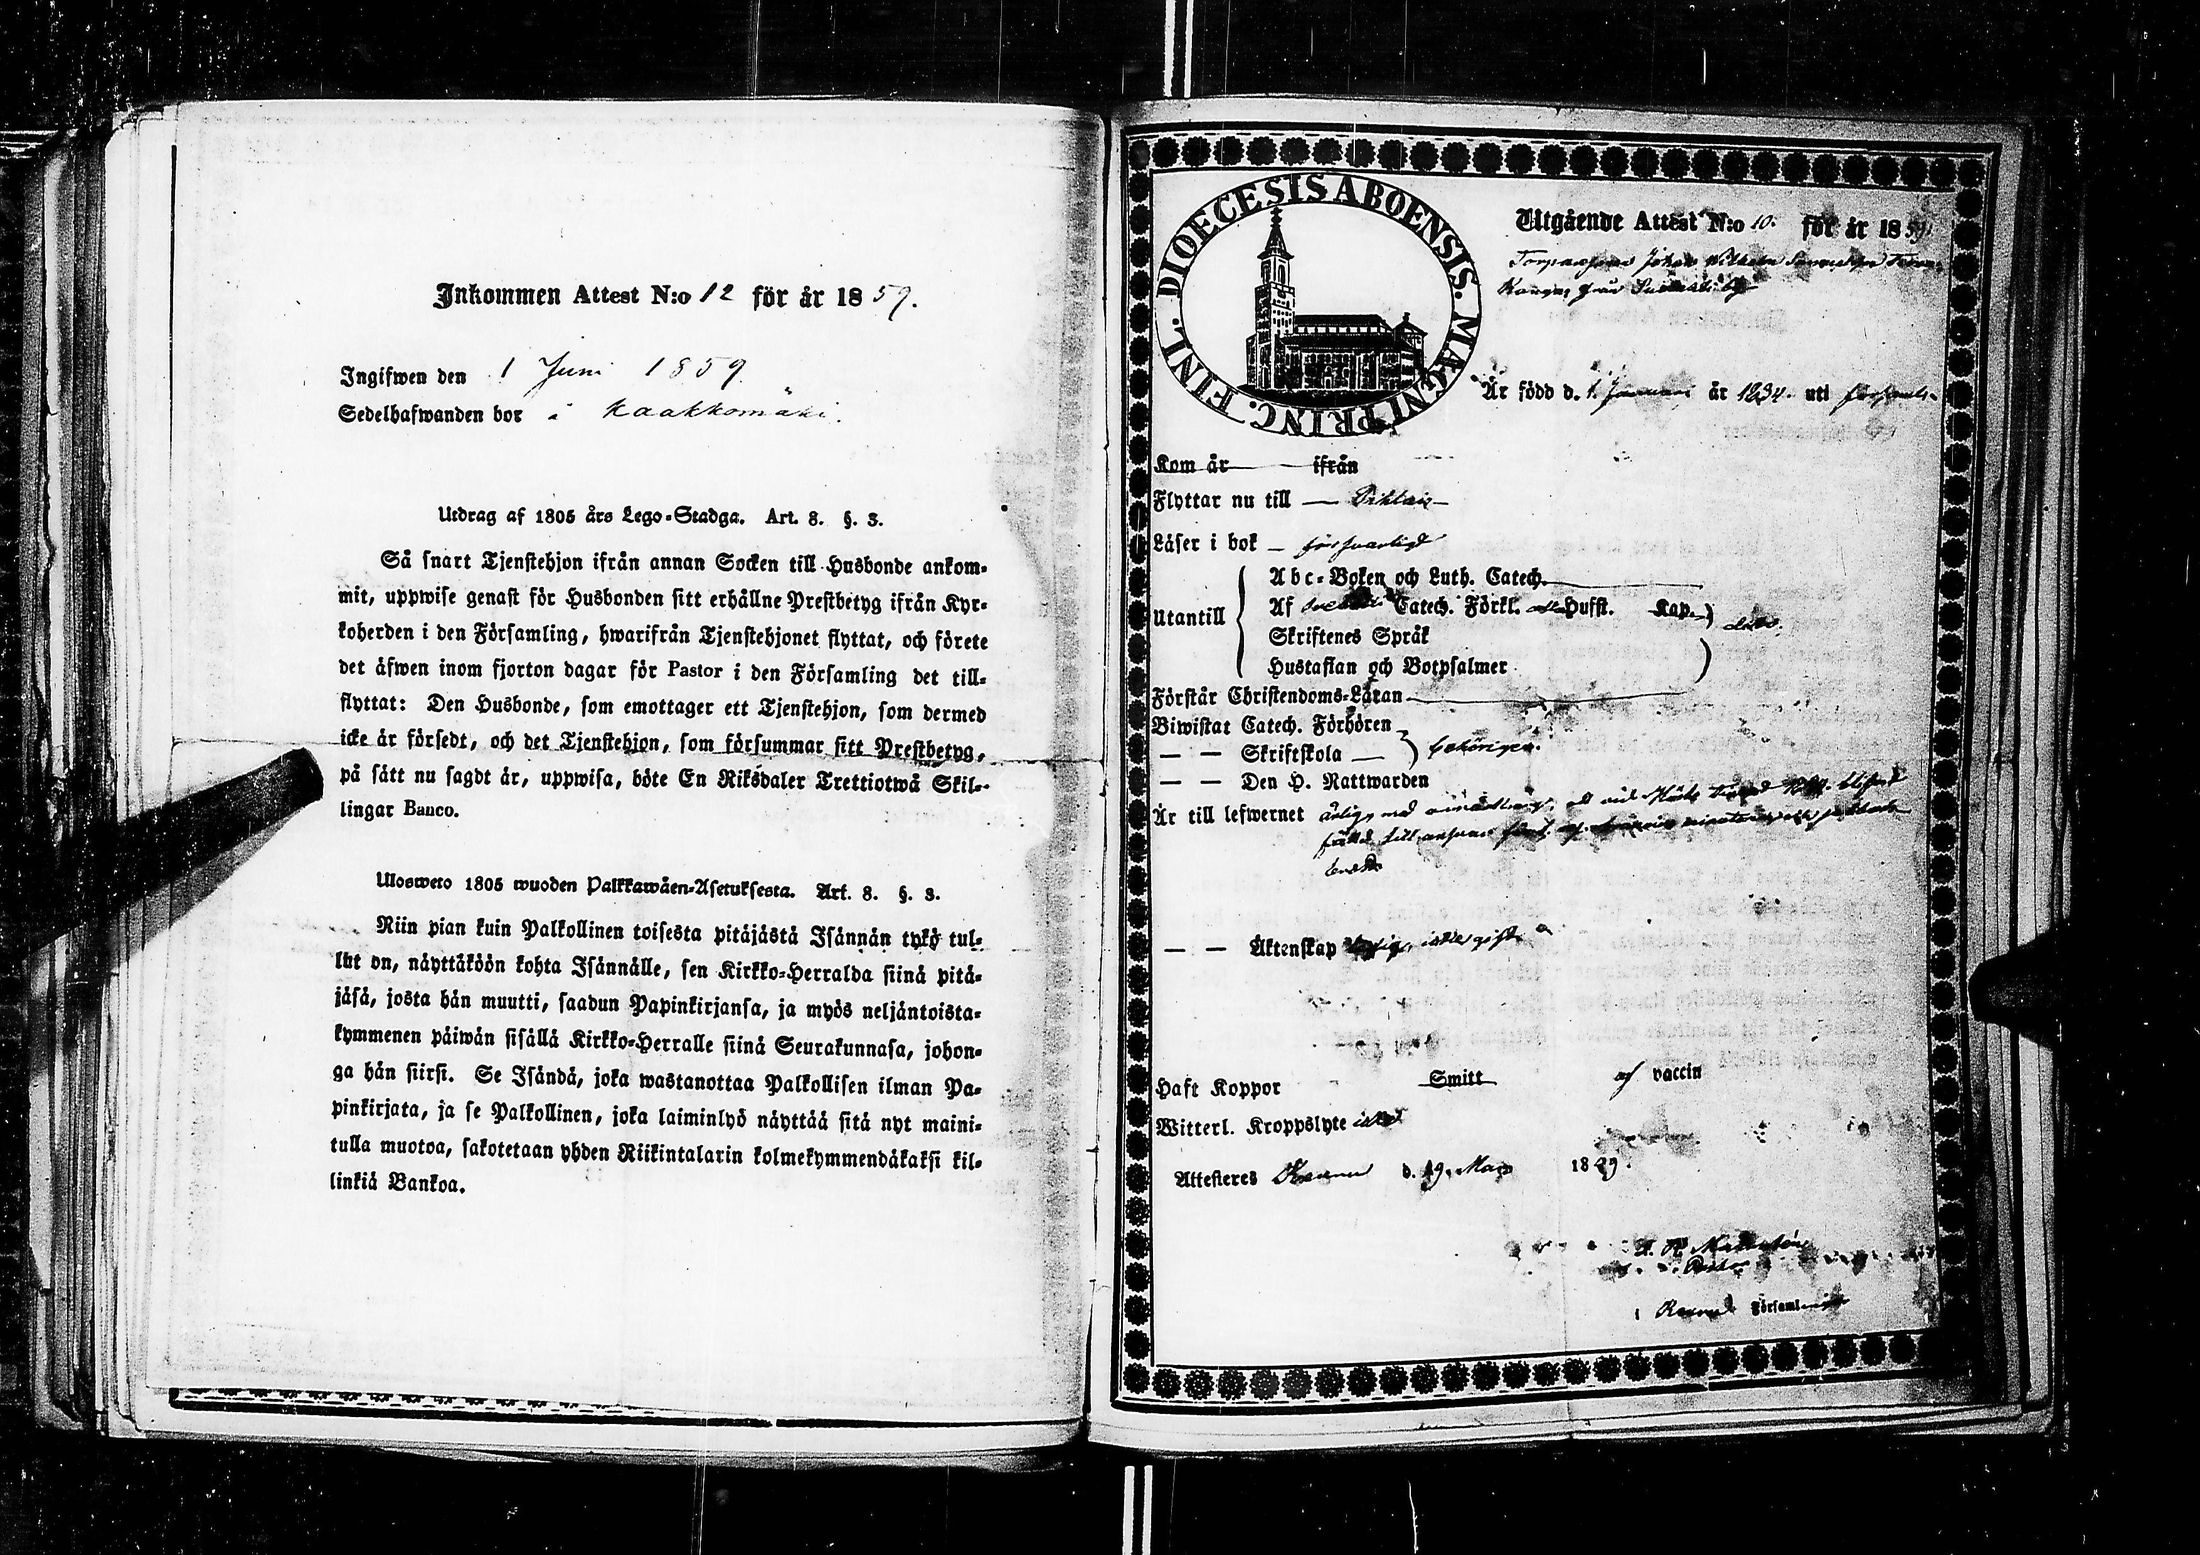 Inkommen Attest N:o 12 för år 1859.
Ingifwen den 1 Juni 1859.
Sedelhafwanden bor i Kaakkomäki.
Utdrag af 1805 års Lego-Stadga. Art. 8. §. 3.
Så snart Tjenstehjon ifrån annan Socken till Husbonde ankom-
mit, uppwise genast för Husbonden sitt erhållne Prestbetyg ifrån Kyr-
koherden i den Församling, hwarifrån Tjenstehjonet flyttat, och förete
det äfwen inom fjorton dagar för Pastor i den Församling det till-
flyttat: Den Husbonde, som emottager ett Tjenstehjon, som dermed
icke är försedt, och det Tjenstehjon, som försummar sitt Prestbetyg,
på sätt nu sagdt är, uppwisa, böte En Riksdaler Trettiotwå Skil-
lingar Banco.
Ulosweto 1805 wuoden Palkkawäen-Asetuksesta. Art. 8. §. 3.
Niin pian kuin Palkollinen toisesta pitäjästä Isännän tykö tul-
lut on, näyttäköön kohta Isännälle, sen Kirkko-Herralda siinä pitä-
jäsä, josta hän muutti, saadun Papinkirjansa, ja myös neljäntoista-
kymmenen päiwän sisällä Kirkko-Herralle siinä Seurakunnasa, johon-
ga hän siirsi. Se Isändä, joka wastanottaa Palkollisen ilman Pa-
pinkirjata, ja se Palkollinen, joka laiminlyö näyttää sitä nyt maini-
tulla muotoa, sakotetaan yhden Riikintalarin kolmekymmendäkaksi kil-
linkiä Bankoa.
DIOECESIS ABOENSIS. MAGNI PRINC. FINL.
Utgående Attest N:o 10. för år 1859.
Johan Wilhelm
från
Är född d. 1 Januari år 1834. uti
Kom år ifrån
Flyttar nu till
Läser i bok försvarligt
Utantill
Abc-Boken och Luth. Catech.
Af Catech. Förkl. Hufst. Kap.
Skriftenes Språk
Hustaflan och Botpsalmer
Förstår Christendoms-Läran
Biwistat Catech. Förhören
— — Skriftskola — behörigen.
— — Den H. Nattwarden
Är till lefwernet ärlig, med
— — Äktenskap ledig,
Haft Koppor Smitt af vaccin
Witterl. Kroppslyte
Attesteres d. 19. Maj 1859.
Pastor
i Församling